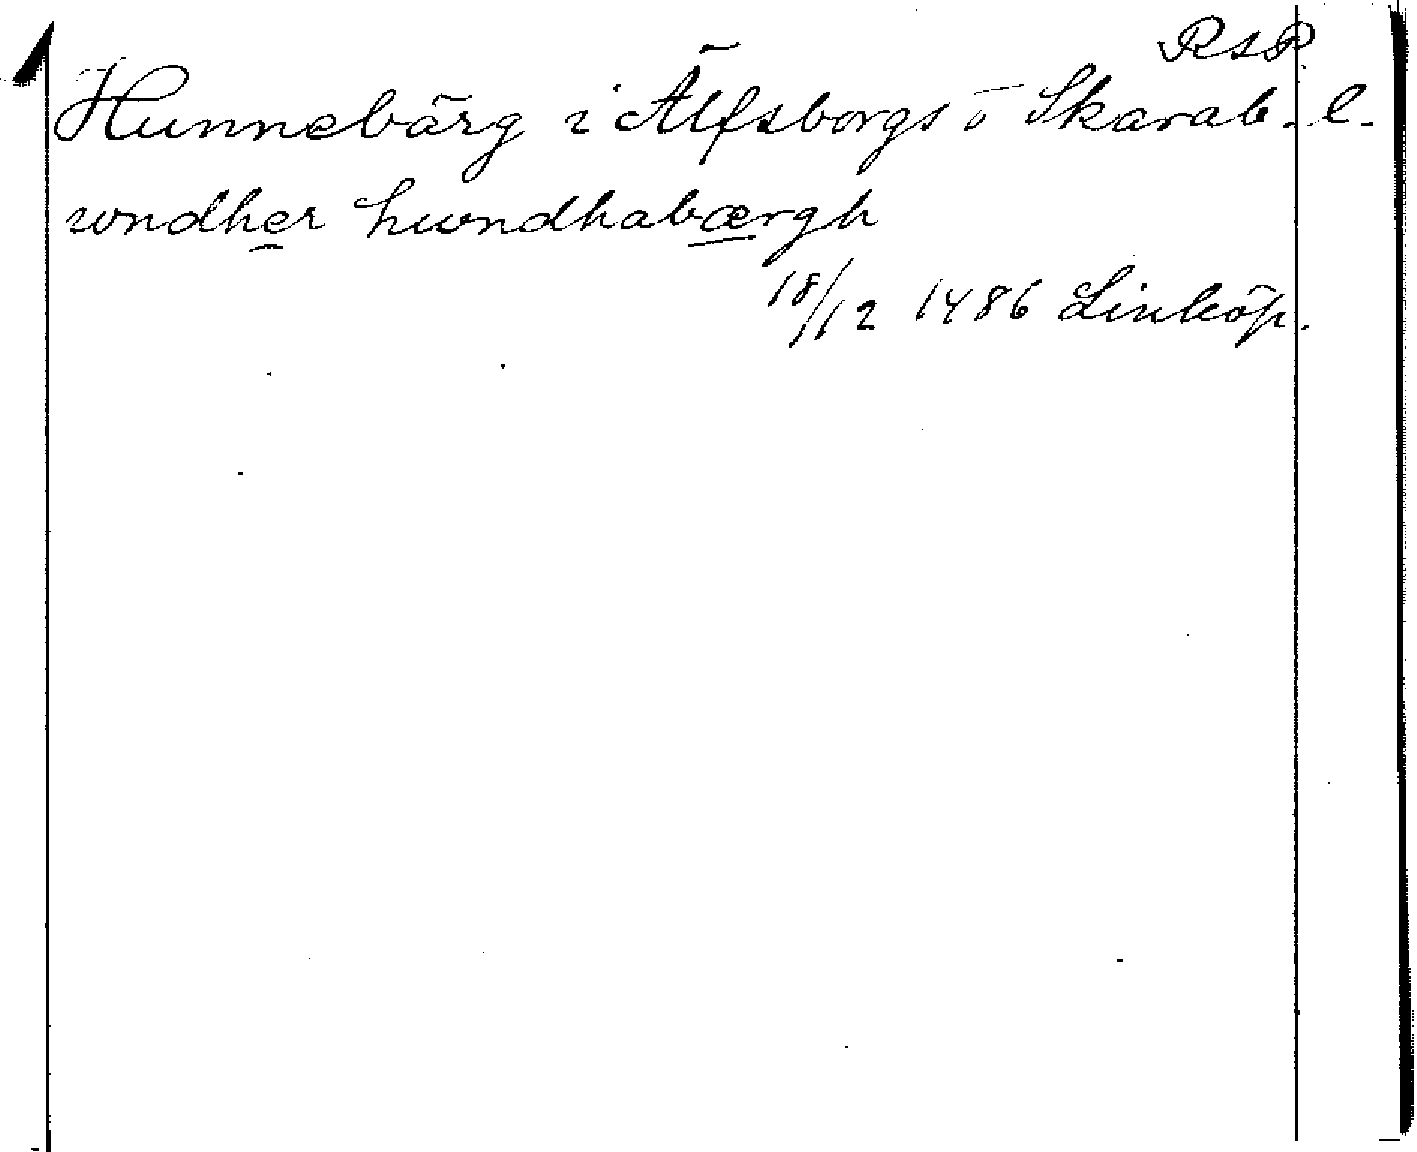 RSP
Hunnebärg i Älfsborgs o Skarab. l.
wndher hwndhabærgh
18/12 1486 Linköp.